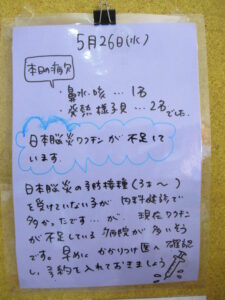 5月26日(水)
本日の病欠
・鼻水、咳 … 1名
・発熱 様子見 … 2名でした。
日本脳炎ワクチンが不足して
います。
日本脳炎の予防接種(3才〜)
を受けていない子が 内科健診で
多かったです…が、現在ワクチン
が不足している 病院が 多いそう
です。早めに かかりつけ医へ 確認
し、予約を入れておきましょう